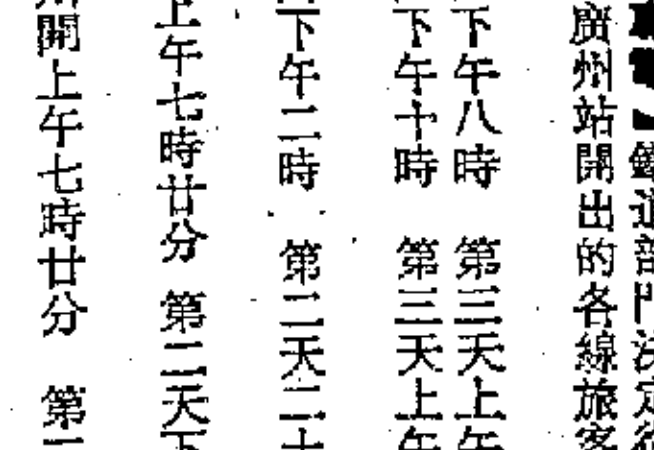 鐵道部門決定從
廣州站開出的各線旅客
下午八時 第三天上午
下午十時 第三天上午
下午二時 第二天二十
上午七時廿分 第二天下
開上午七時廿分 第